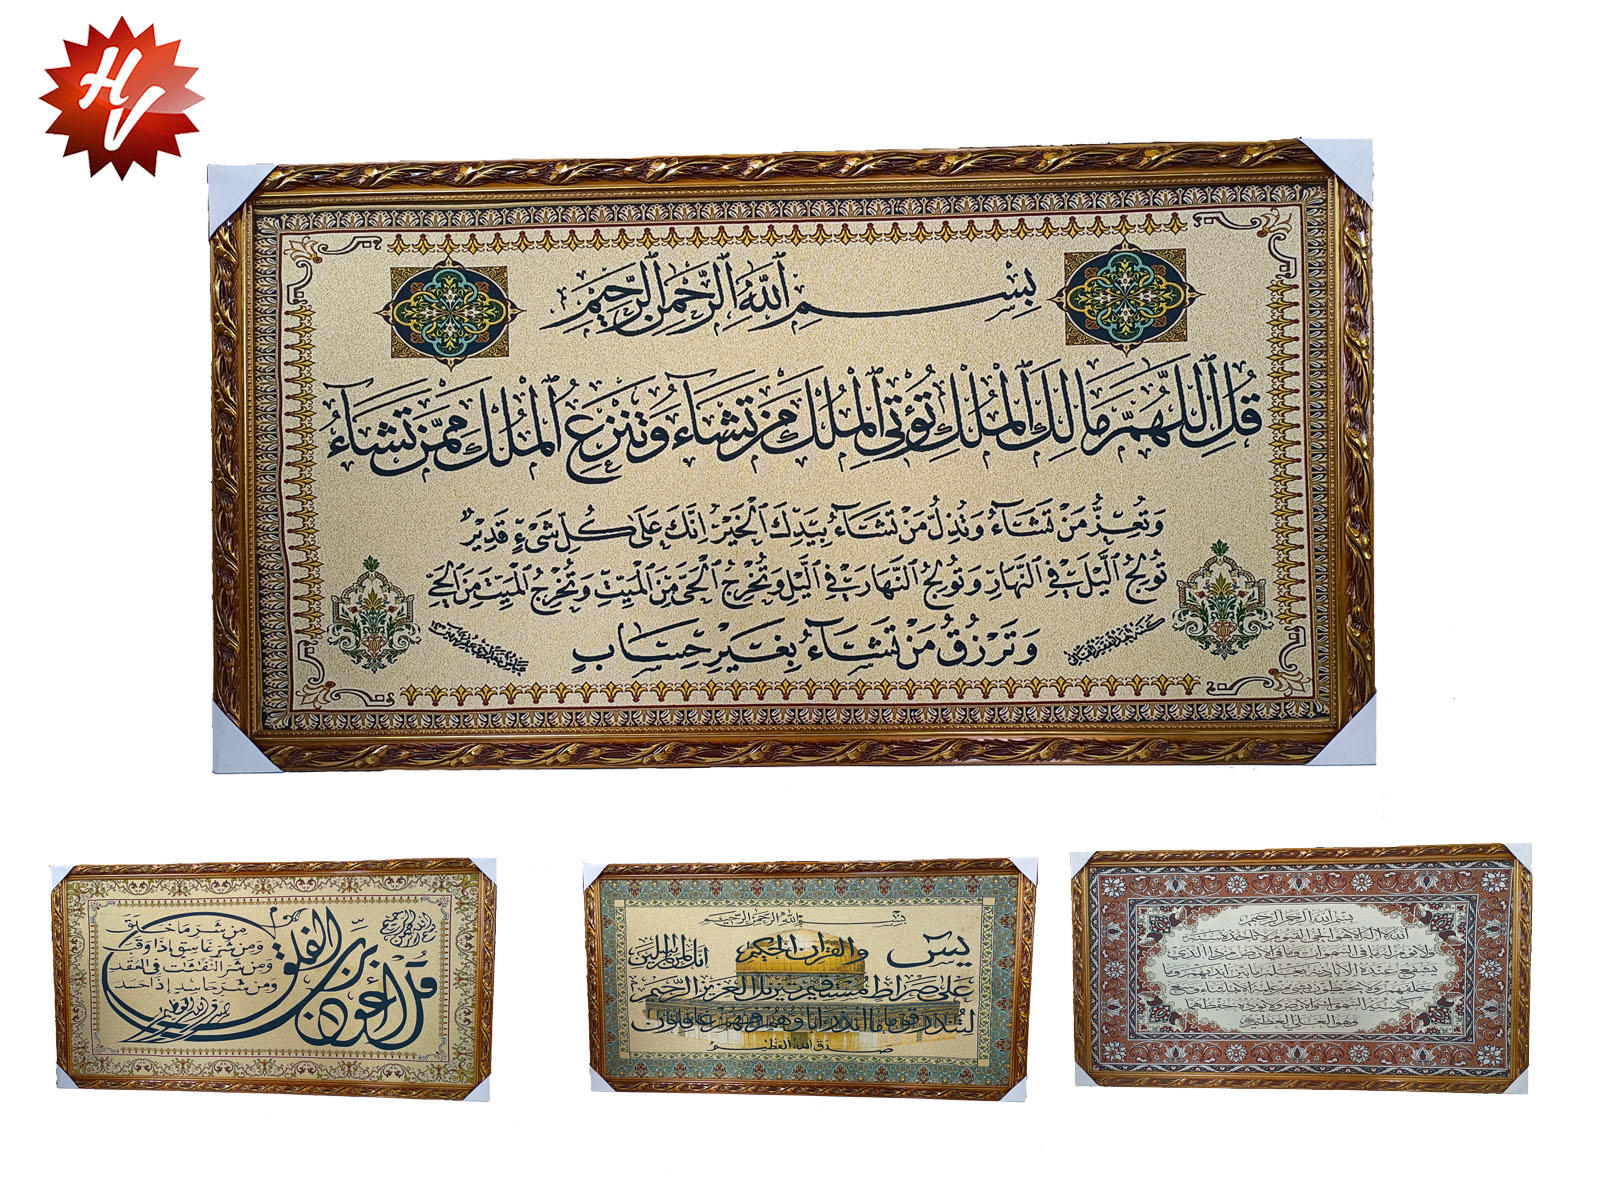 HV
بِسْمِ ٱللَّهِ ٱلرَّحْمَنِ ٱلرَّحِيمِ
قُلِ ٱللَّهُمَّ مَالِكَ ٱلْمُلْكِ تُؤْتِى ٱلْمُلْكَ مَنْ تَشَآءُ وَتَنْزِعُ ٱلْمُلْكَ مِمَّنْ تَشَآءُ
وَتُعِزُّ مَنْ تَشَآءُ وَتُذِلُّ مَنْ تَشَآءُ بِيَدِكَ ٱلْخَيْرُ اِنَّكَ عَلَى كُلِّ شَىْءٍ قَدِيْرٌ
تُولِجُ ٱلَّيْلَ فِي ٱلنَّهَارِ وَتُولِجُ ٱلنَّهَارَ فِي ٱلَّيْلِ وَتُخْرِجُ ٱلْحَىَّ مِنَ ٱلْمَيِّتِ وَتُخْرِجُ ٱلْمَيِّتَ مِنَ ٱلْحَيِّ
وَتَرْزُقُ مَنْ تَشَآءُ بِغَيْرِ حِسَابٍ
قل أعوذ برب الفلق
من شر ما خلق
ومن شر غاسق إذا وقب
ومن شر النفاثات في العقد
ومن شر حاسد إذا حسد
صدق الله العظيم
بسم الله الرحمن الرحيم
يس والقرآن الحكيم انك لمن المرسلين
على صراط مستقيم تنزيل العزيز الرحيم
لتنذر قوما ما انذر آباؤهم فهم غافلون
صدق الله العظيم
بسم الله الرحمن الرحيم
الله لا اله الا هو الحي القيوم لا تأخذه سنة
ولا نوم له ما في السموات وما في الارض من ذا الذي
يشفع عنده الا باذنه يعلم ما بين ايديهم وما
خلفهم ولا يحيطون بشيء من علمه الا بما شاء وسع
كرسيه السموات والارض ولا يؤده حفظهما
وهو العلي العظيم